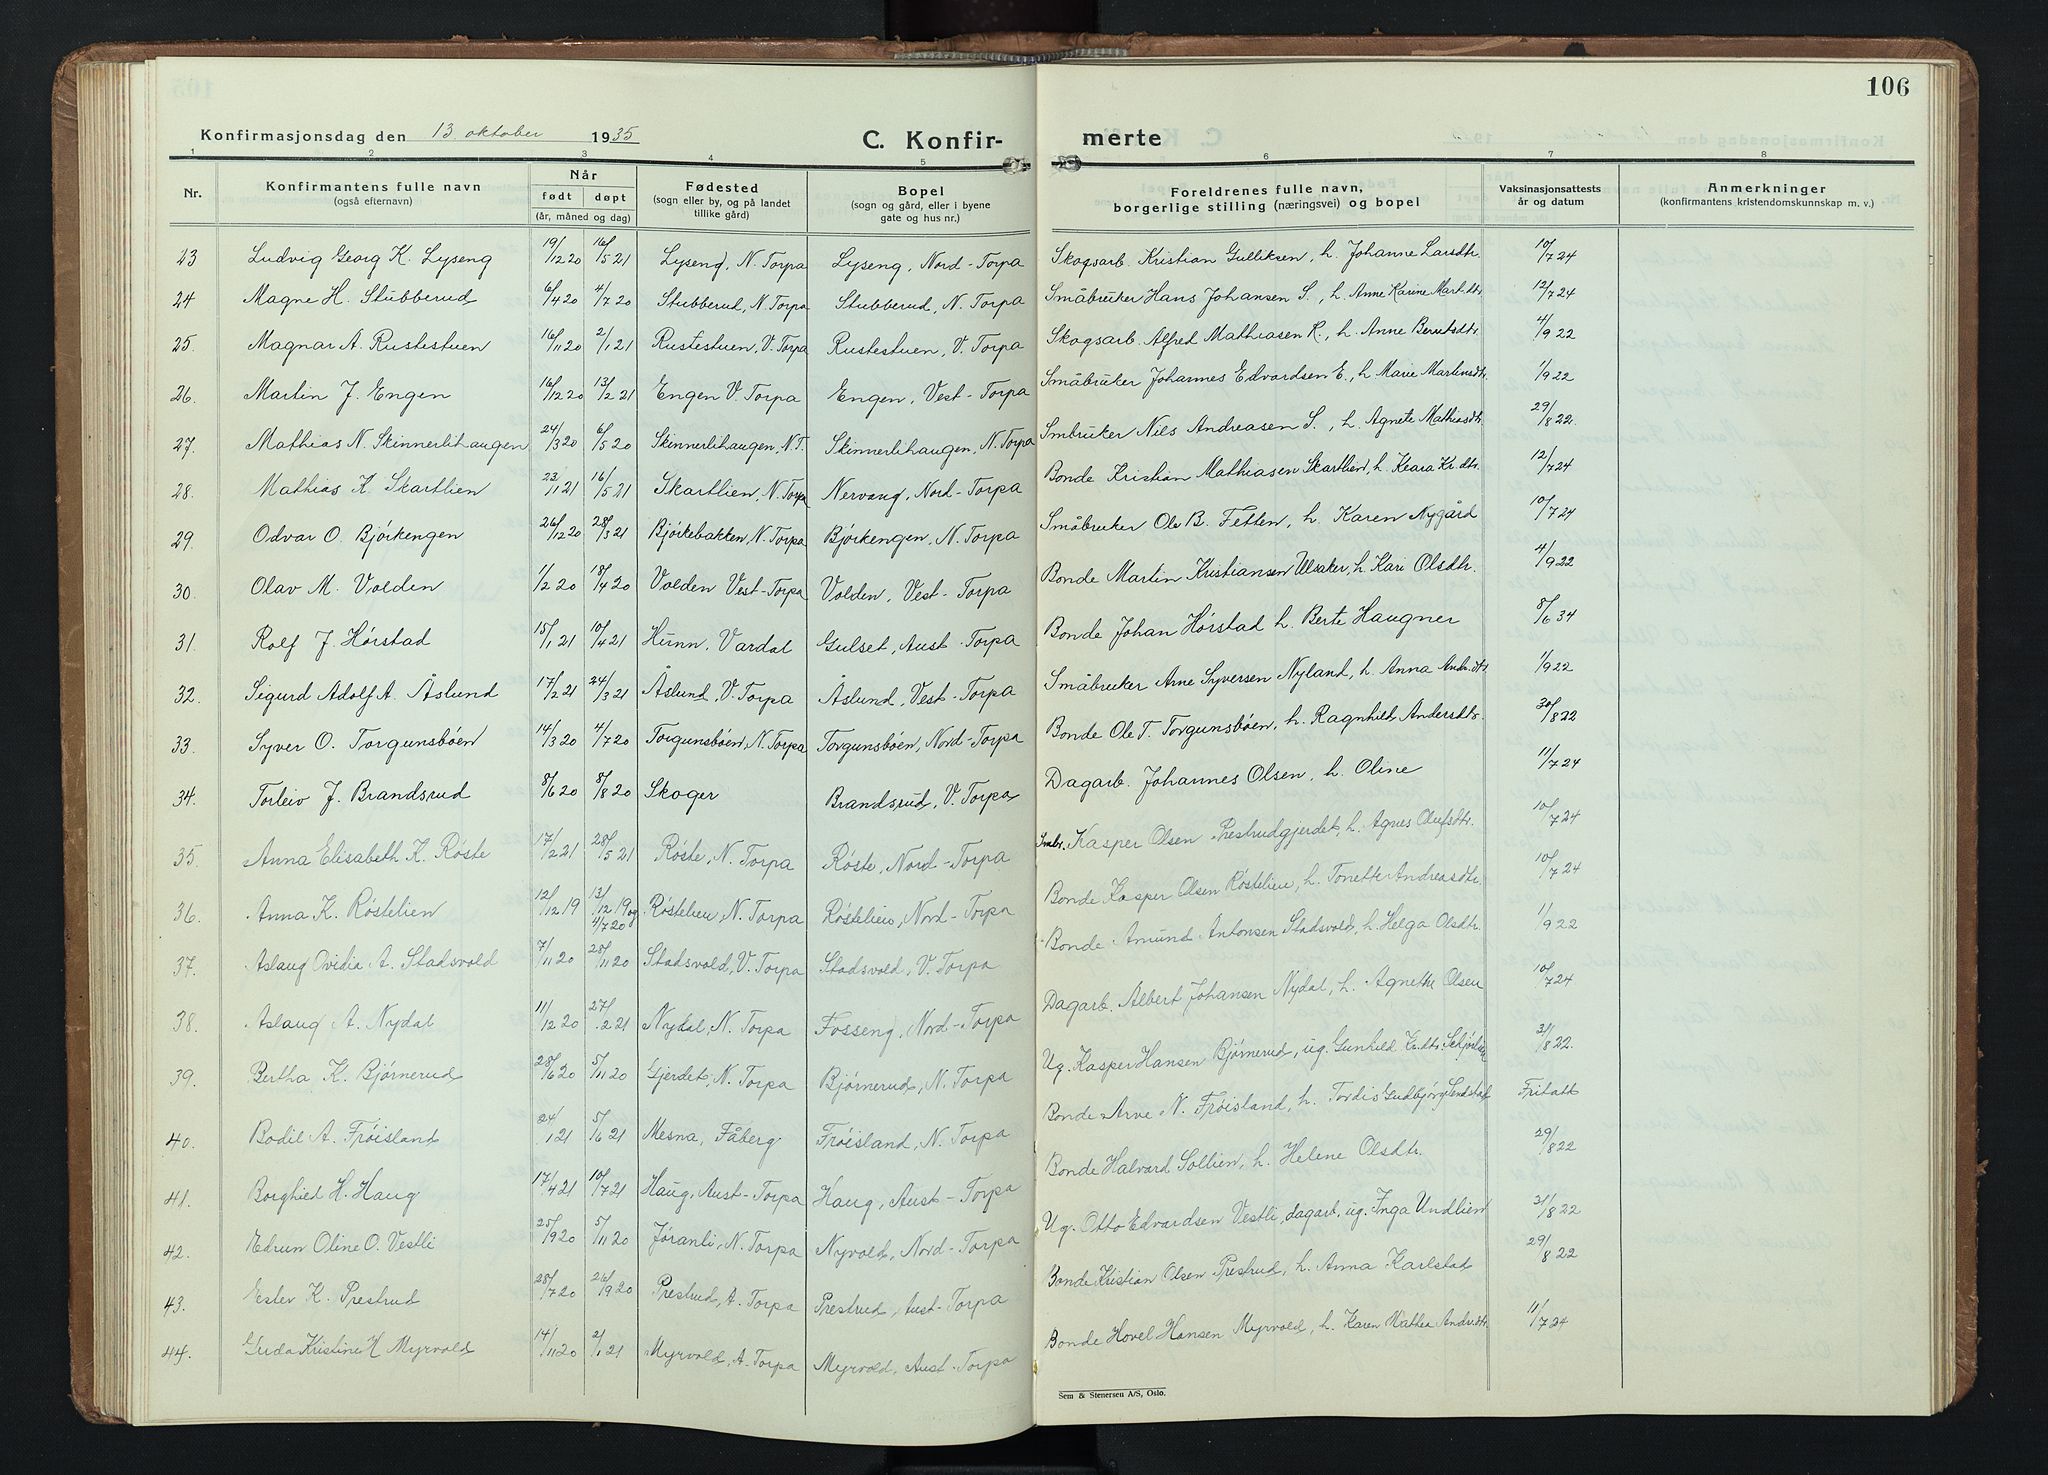 106
Konfirmasjonsdag den 13 oktober 1935
C. Konfir-
merte
1 2 3 4 5 6 7 8
Nr.
Konfirmantens fulle navn
(også efternavn)
Når
født døpt
(år, måned og dag)
Fødested
(sogn eller by, og på landet
tillike gård)
Bopel
(sogn og gård, eller i byene
gate og hus nr.)
Foreldrenes fulle navn,
borgerlige stilling (næringsvei) og bopel
Vaksinasjonsattests
år og datum
Anmerkninger
(konfirmantens kristendomskunnskap m. v.)
23 Ludvig Georg K. Lyseng 19/12 20 16/5 21 Lyseng, N. Torpa Lyseng, Nord-Torpa Skogsarb. Kristian Gulliksen, h. Johanne Larsdtr. 10/7 24
24 Magne H. Stubberud 6/4 20 4/7 20 Stubberud, N. Torpa Stubberud, N. Torpa Småbruker Hans Johansen S., h. Anne Karine Mart.dtr 12/7 24
25. Magnar A. Rustestuen 16/11 20 2/1 21 Rustestuen, V. Torpa Rustestuen, V. Torpa Skogsarb. Alfred Mathiasen R., h. Anne Berntsdtr. 4/9 22
26. Martin J. Engen 16/12 20 13/2 21 Engen V. Torpa Engen, Vest-Torpa Småbruker Johannes Edvardsen E., h. Marie Martinsdtr. 1/9 22
27. Mathias N. Skinnerlihaugen 24/3 20 6/5 20 Skinnerlihaugen, N.T. Skinnerlihaugen, N. Torpa Smbruker Nils Andreasen S., h. Agnete Mathiasdtr. 29/8 22.
28. Mathias K. Skartlien 23/11 21 16/5 21 Skartlien, N. Torpa Nervang, Nord-Torpa Bonde Kristian Mathiasen Skartlien, h. Keara Kr.dtr. 12/7 24
29. Odvar O. Bjørkengen 26/12 20 28/3 21 Bjørkebakken, N. Torpa Bjørkengen, N. Torpa Småbruker Ole B. Fetten, h. Karen Nygård 10/7 24
30. Olav M. Volden 1/2 20 18/4 20 Volden Vest-Torpa Volden, Vest-Torpa Bonde Martin Kristiansen Ulsaker, h. Kari Olsdtr. 4/9 22
31. Rolf J. Hørstad 15/1 21 10/4 21 Hunn, Vardal Gulset, Aust-Torpa Bonde Johan Hørstad h. Berte Haugner 8/6 34
32. Sigurd Adolf A. Åslund 17/2 21 24/3 21 Åslund, V. Torpa Åslund, Vest-Torpa Småbruker Arne Syversen Nyland, h. Anna Andr.dtr 1/9 22
33. Syver O. Torgunsbøen 14/3 20 4/7 20 Torgunsbøen, N. Torpa Torgunsbøen, Nord-Torpa Bonde Ole T. Torgunsbøen, h. Ragnhild Andersdtr. 30/8 22
34. Torleiv J. Brandsrud 8/6 20 8/8 20 Skoger Brandsrud, V. Torpa Dagarb. Johannes Olsen, h. Oline 11/7 24
35. Anna Elisabeth K. Røste 17/2 21 28/5 21 Røste, N. Torpa Røste, Nord-Torpa Smbr. Kasper Olsen Prestrudgjerdet, h. Agnes Olufsdtr. 10/7 24
36. Anna K. Røstelien 12/12 19 13/12 19 og 4/7 20 Røstelien, N. Torpa Røstelien, Nord-Torpa Bonde Kasper Olsen Røstelien, h. Tonette Andreasdtr. 10/7 24
37. Aslaug Ovidia A. Stadsvold 7/11 20 28/11 20 Stadsvold, V. Torpa Stadsvold, V. Torpa Bonde Amund Antonsen Stadsvold, h. Helga Olsdtr. 1/9 22
38. Aslaug A. Nydal 11/12 20 27/2 21 Nydal, N. Torpa Fosseng, Nord-Torpa Dagarb. Albert Johansen Nydal, h. Agnethe Olsen 10/7 24
39. Bertha K. Bjørnerud 28/6 20 5/11 20 Gjerdet, N. Torpa Bjørnerud, N. Torpa Ug. Kasper Hansen Bjørnerud, ug. Gunhild Kr.dtr. 31/8 22.
40. Bodil A. Frøisland 24/1 21 5/6 21 Mesna, Fåberg Frøisland, N. Torpa Bonde Arve N. Frøisland, h. Tordis Gudbjørg Fritatt
41. Borghild H. Haug 17/4 21 10/7 21 Haug, Aust-Torpa Haug, Aust-Torpa Bonde Halvard Sollien, h. Helene Olsdtr. 29/8 22
42. Edrun Oline O. Vestli 25/9 20 5/11 20 Jøranli, N. Torpa Nyvold, Nord-Torpa Ug. Otto Edvardsen Vestli, dagarb, ug. Inga Undlien 31/8 22
43. Eslev K. Prestrud 28/7 20 26/9 20 Prestrud, A. Torpa Prestrud, Aust-Torpa Bonde Kristian Olsen Prestrud, h. Anna Karlstad 29/8 22
44. Guda Kristine H Myrvold 14/11 20 2/1 21 Myrvold, A. Torpa Myrvold, Aust-Torpa Bonde Hovel Hansen Myrvold, h. Karen Mathea Andr.dtr 11/7 24
Sem & Stenersen A/S, Oslo.